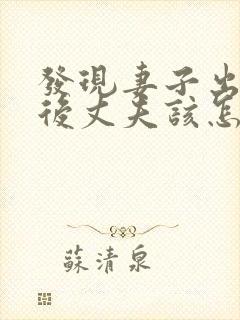 發現妻子出
後丈夫該怎
蘇清泉